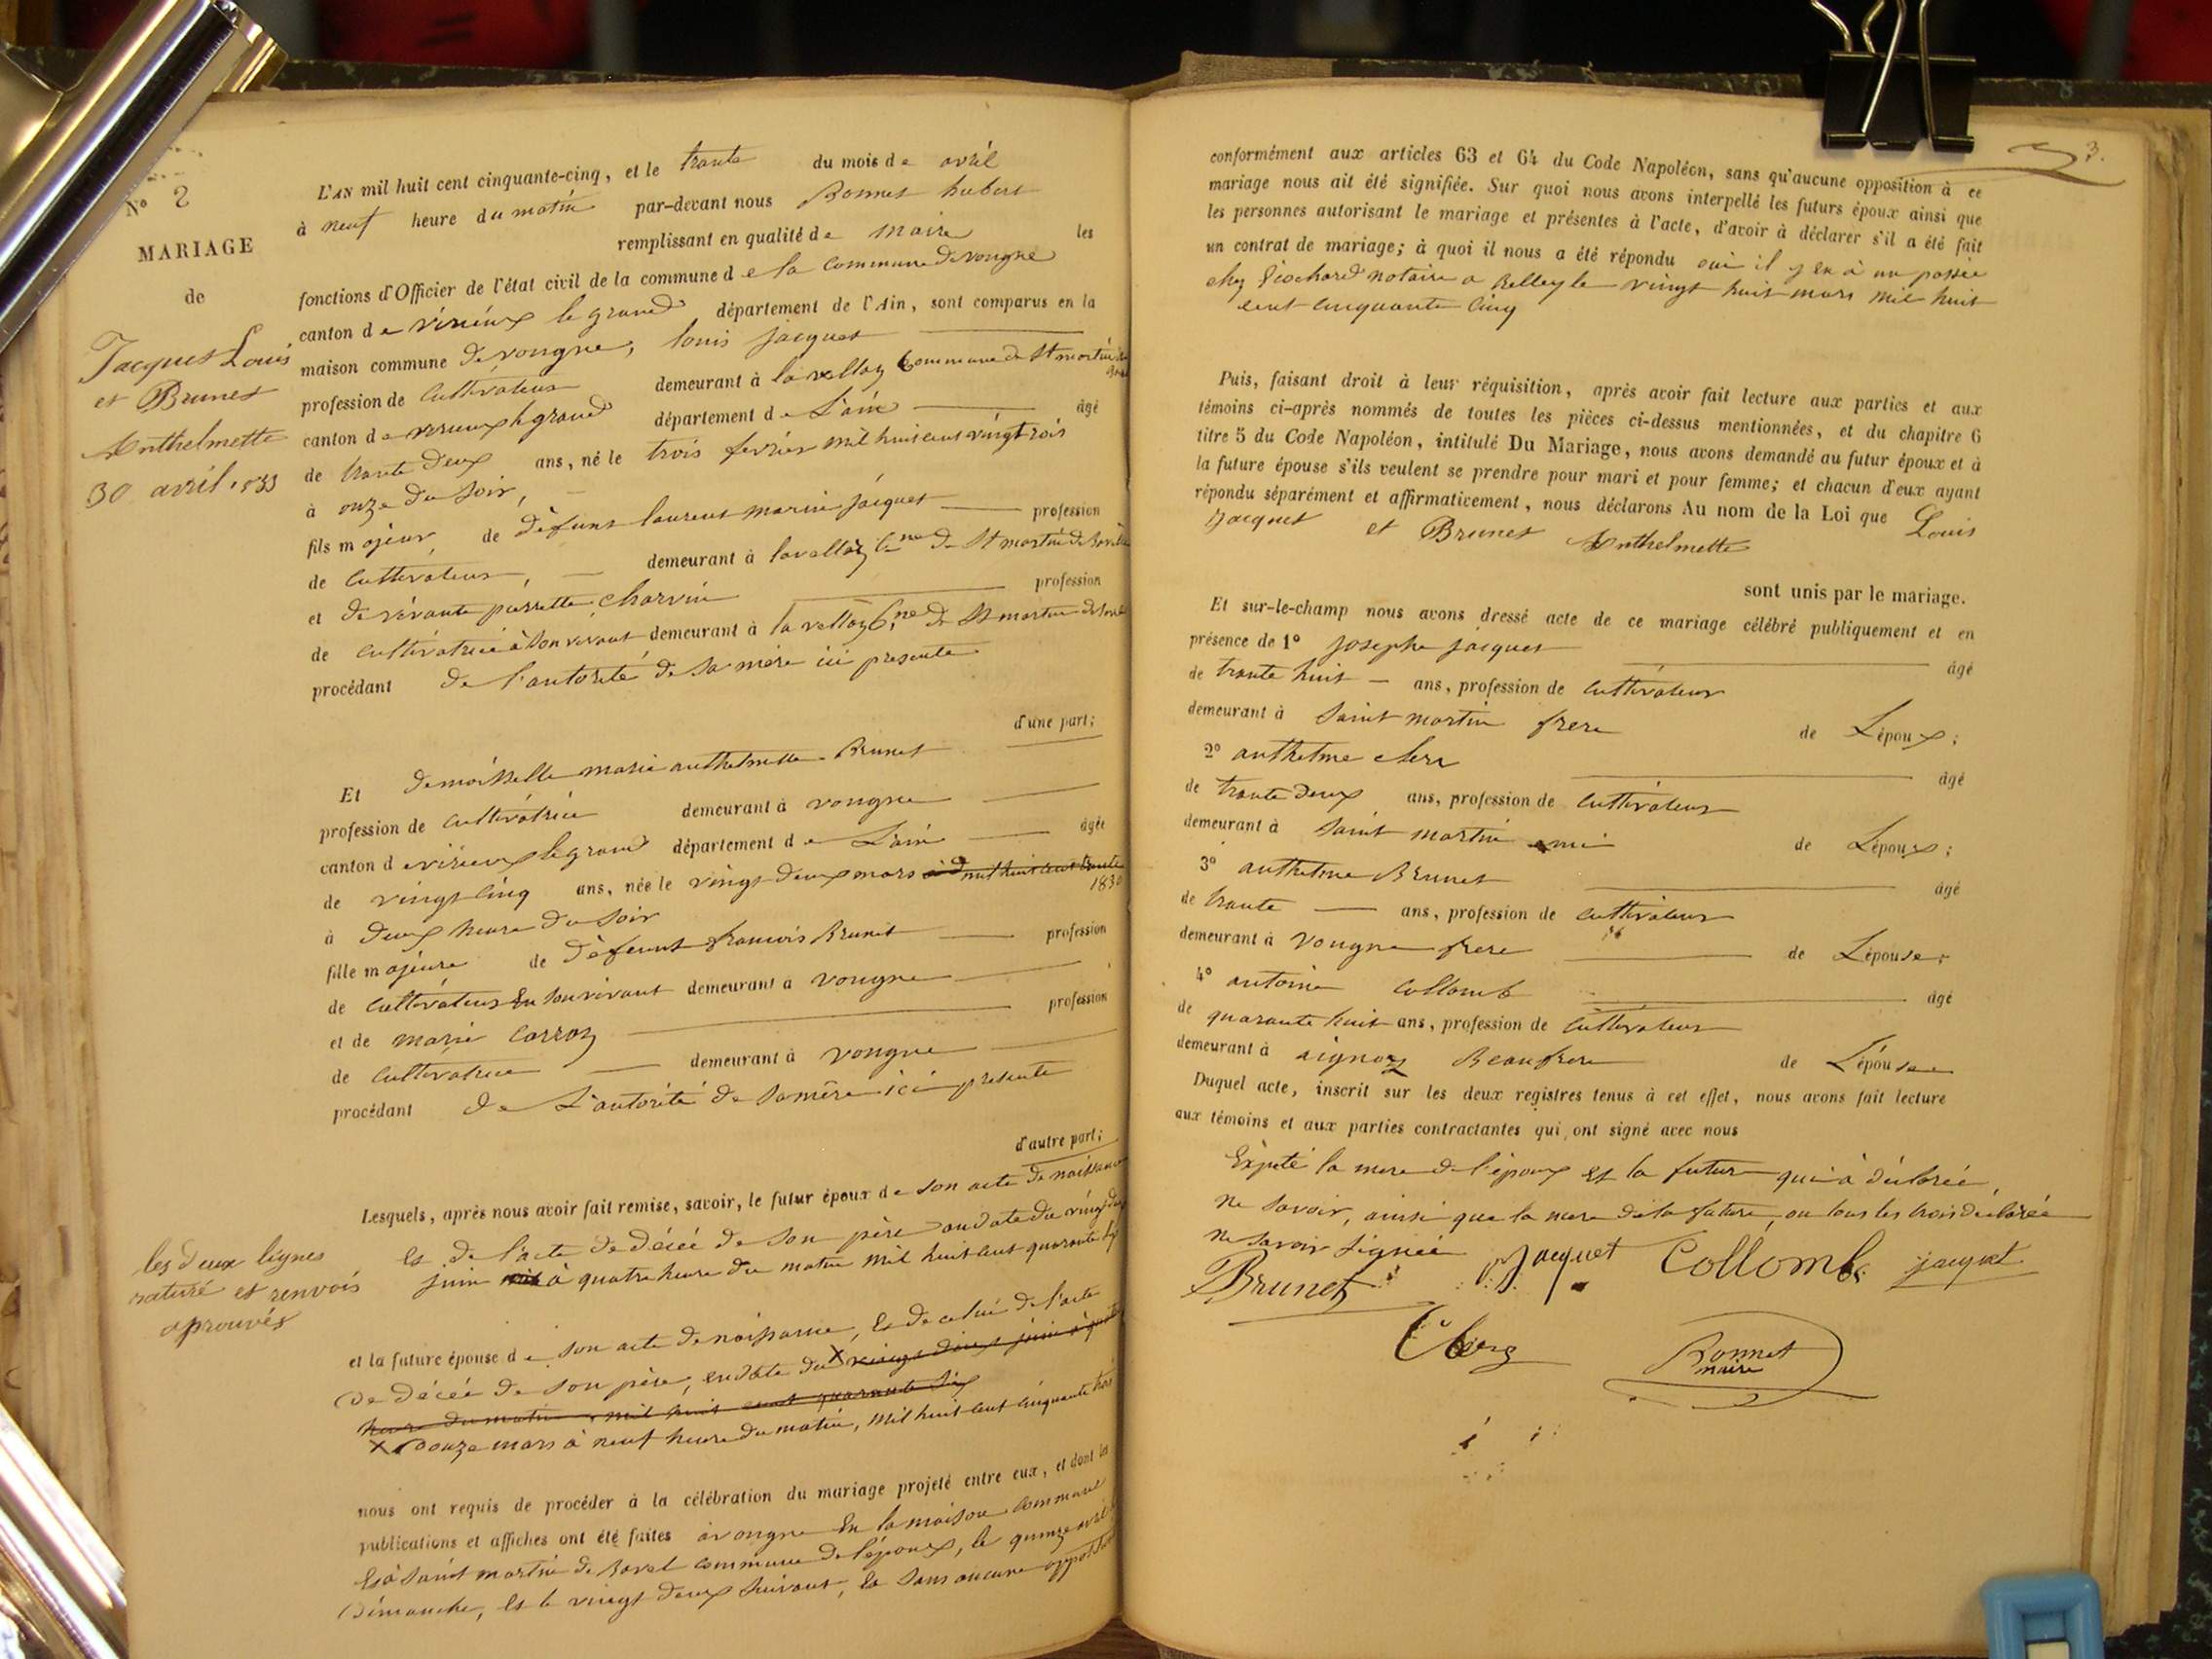 N° 2
MARIAGE
de
Jacquet Louis
et Brunet
Anthelmette
30 avril 1855
L'AN mil huit cent cinquante-cinq, et le trante du mois de avril
à neuf heure du matin par-devant nous Bonnet hubert
remplissant en qualité de maire les
fonctions d'Officier de l'état civil de la commune de la commune de vongne
canton de virieux le grand département de l'Ain, sont comparus en la
maison commune de vongne, louis jacquet
profession de cultivateur demeurant à la vellaz commune de St martin de
canton de virieux le grand département de L'ain âgé
de trante deux ans, né le trois fevrier mil huit cent vingt trois
à onze du soir,
fils majeur, de défunt laurent marin jacquet profession
de cultivateur, demeurant à lavellaz Cne de St martin de
et de vivante pierrette charvin profession
de cultivatrice à son vivant demeurant à la vellaz Cne de St martin de
procédant de l'autorité de sa mère ici presente
d'une part;
Et demoisselle marie anthelmette Brunet
profession de cultivatrice demeurant à vongne
canton de virieux le grand département de L'ain âgée
de vingt cinq ans, née le vingt deux mars mil huit cent trante
1830
à deux heure du soir
fille majeure de défunt francois Brunet profession
de cultivateur En son vivant demeurant à vongne
et de marie Carroz profession
de cultivatrice demeurant à vongne
procédant de L'autorité de sa mère ici presente
d'autre part;
Lesquels, après nous avoir fait remise, savoir, le futur époux de son acte de naissance
Et de l'acte de décée de son père en date du vingt deux
juin à quatre heure du matin mil huit cent quarante
les deux lignes
raturé et renvois
aprouvés
et la future épouse de son acte de naissance, Et de celui de l'acte
de décée de son père, en date du X vingt deux juin à quatre
heure du matin mil huit cent quarante six
X douze mars à neuf heure du matin, mil huit cent cinquante trois
nous ont requis de procéder à la célébration du mariage projeté entre eux, et dont les
publications et affiches ont été faites à vongne En la maison commune
Et à saint martin de savel commune de l'époux, le quinze avril
Dimanche, Et le vingt deux suivant, Et sans aucune opposition
3.
conformément aux articles 63 et 64 du Code Napoléon, sans qu'aucune opposition à ce
mariage nous ait été signifiée. Sur quoi nous avons interpellé les futurs époux ainsi que
les personnes autorisant le mariage et présentes à l'acte, d'avoir à déclarer s'il a été fait
un contrat de mariage; à quoi il nous a été répondu oui il y en à un passée
chez notaire a Belley le vingt huit mars mil huit
cent cinquante cinq
Puis, faisant droit à leur réquisition, après avoir fait lecture aux parties et aux
témoins ci-après nommés de toutes les pièces ci-dessus mentionnées, et du chapitre 6
titre 5 du Code Napoléon, intitulé Du Mariage, nous avons demandé au futur époux et à
la future épouse s'ils veulent se prendre pour mari et pour femme; et chacun d'eux ayant
répondu séparément et affirmativement, nous déclarons Au nom de la Loi que Louis
Jacquet et Brunet Anthelmette
sont unis par le mariage.
Et sur-le-champ nous avons dressé acte de ce mariage célébré publiquement et en
présence de 1° josephe jacquet âgé
de trante huit ans, profession de cultivateur
demeurant à saint martin frere de L'époux;
2° anthelme clerc âgé
de trante deux ans, profession de cultivateur
demeurant à saint martin ami de L'époux;
3° anthelme Brunet âgé
de trante ans, profession de cultivateur
demeurant à vongne frere de L'épouse;
4° antoine collomb âgé
de quarante huit ans, profession de cultivateur
demeurant à Beaufrere de L'épouse
Duquel acte, inscrit sur les deux registres tenus à cet effet, nous avons fait lecture
aux témoins et aux parties contractantes qui ont signé avec nous
Expeté la mere de l'époux et la future qui à déclarée
ne savoir, ainsi que la mere de la future, ou tous les trois déclarée
ne savoir signée
Brunet Jacquet Collomb jacquet
Clerc
Bonnet
maire